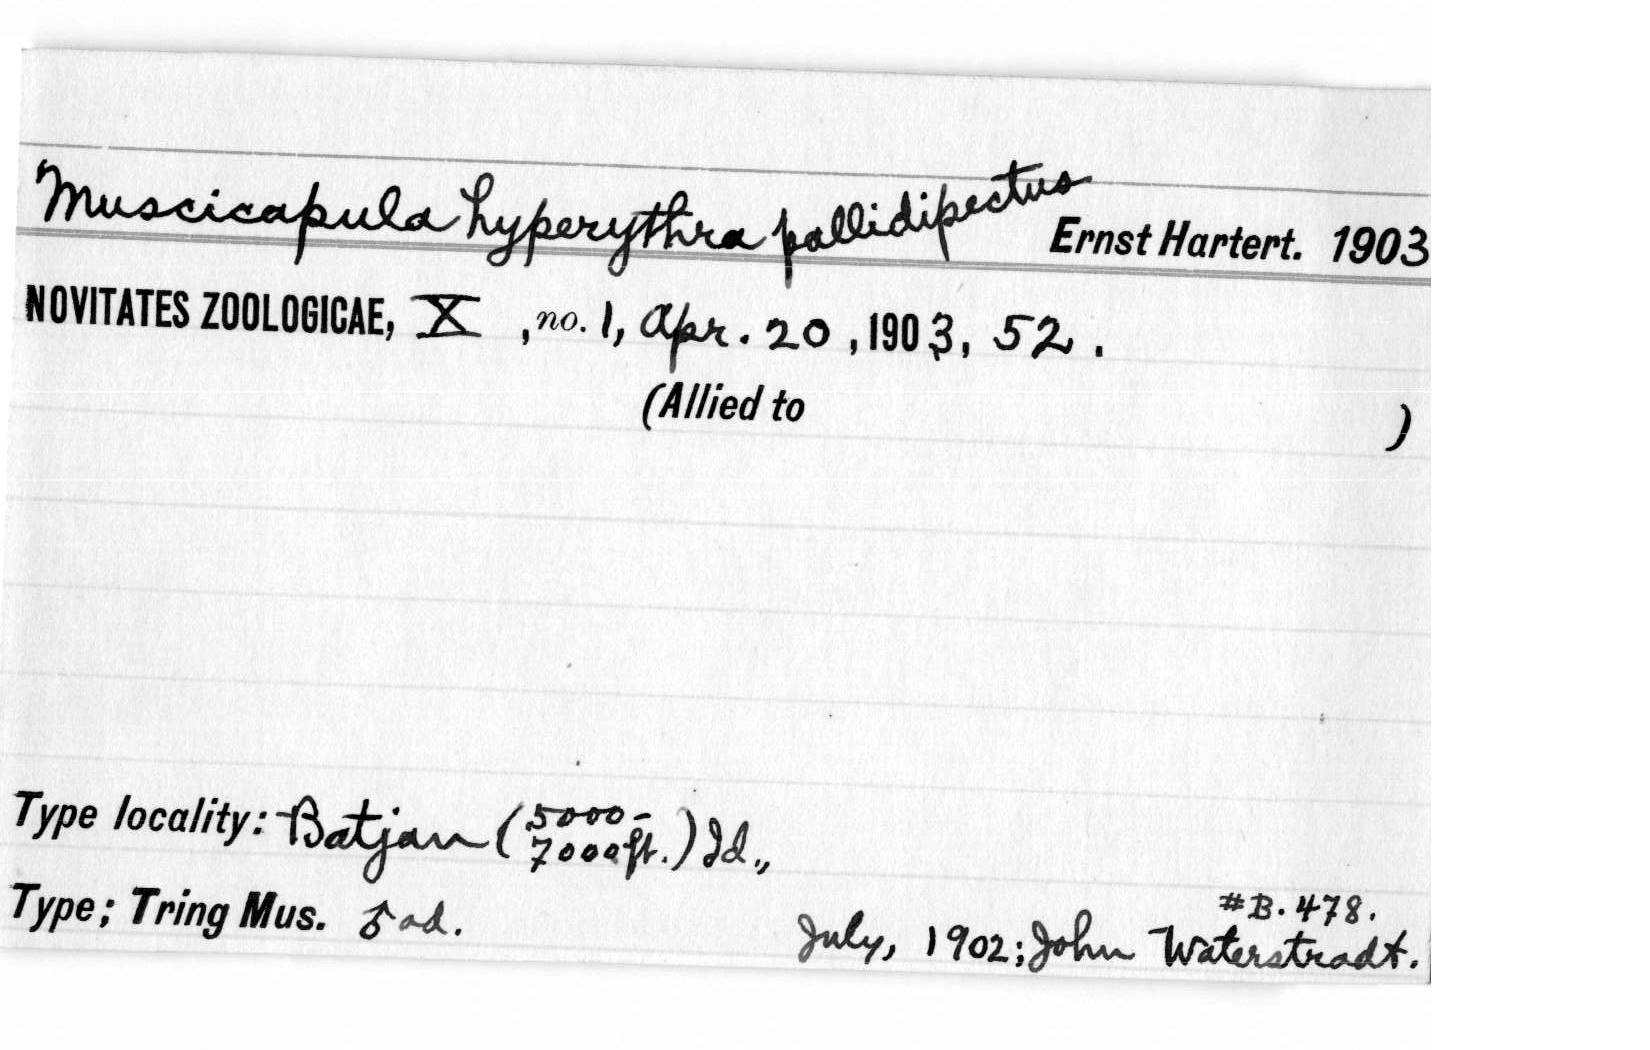 Muscicapula hyperythra pallidipectus Ernst Hartert. 1903
NOVITATES ZOOLOGICAE, X, no. 1, Apr. 20, 1903, 52.
(Allied to )
Type locality: Batjan (5000-7000 ft.) Id.,
Type; Tring Mus. ♂ ad. #B.478.
July, 1902; John Waterstradt.